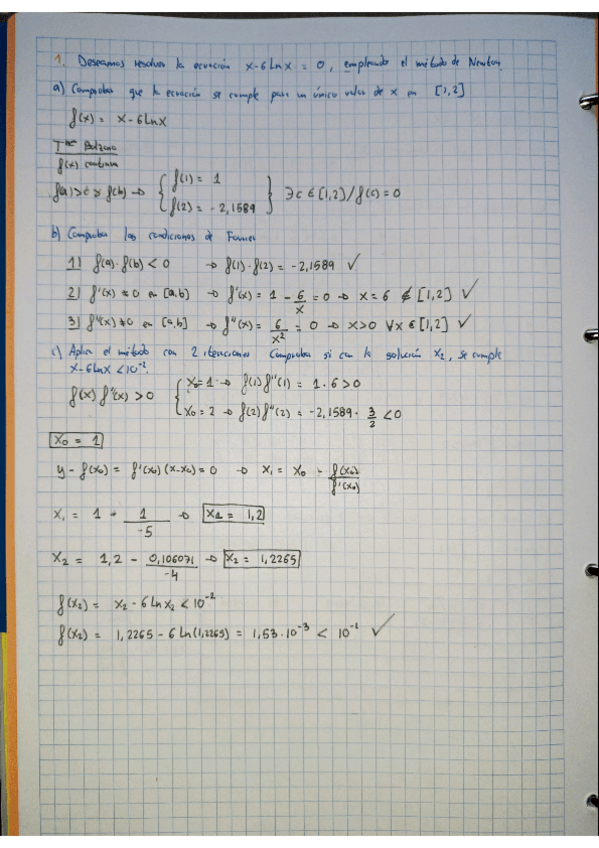 1. Deseamos resolver la ecuación x-6Lnx = 0, empleando el método de Newton.
a) Comprobar que la ecuación se cumple para un único valor de x en [1,2]
f(x) = x-6Lnx
T^ma Bolzano
f(x) continua
f(a) > c > f(b) → { f(1) = 1
f(2) = -2,1589 } ∃ c ∈ [1,2] / f(c) = 0
b) Comprobar las condiciones de Fourier
1) f(a)·f(b) < 0 → f(1)·f(2) = -2,1589 ✓
2) f'(x) ≠ 0 en [a,b] → f'(x) = 1 - 6/x = 0 → x = 6 ∉ [1,2] ✓
3) f''(x) ≠ 0 en [a,b] → f''(x) = 6/x² = 0 → x>0 ∀x ∈ [1,2] ✓
c) Aplica el método con 2 iteraciones Comprueba si con la solución x₂, se cumple
x-6Lnx < 10⁻².
f(x) f''(x) > 0 { x₀ = 1 → f(1) f''(1) = 1·6 > 0
x₀ = 2 → f(2) f''(2) = -2,1589 · 3/2 < 0
x₀ = 1
y - f(x₀) = f'(x₀) (x-x₀) = 0 → x₁ = x₀ - f(x₀)/f'(x₀)
x₁ = 1 - 1/-5 → x1 = 1,2
x₂ = 1,2 - 0,106071/-4 → x₂ = 1,2265
f(x₂) = x₂ - 6 Ln x₂ < 10⁻²
f(x₂) = 1,2265 - 6 Ln(1,2265) = 1,53·10⁻³ < 10⁻² ✓